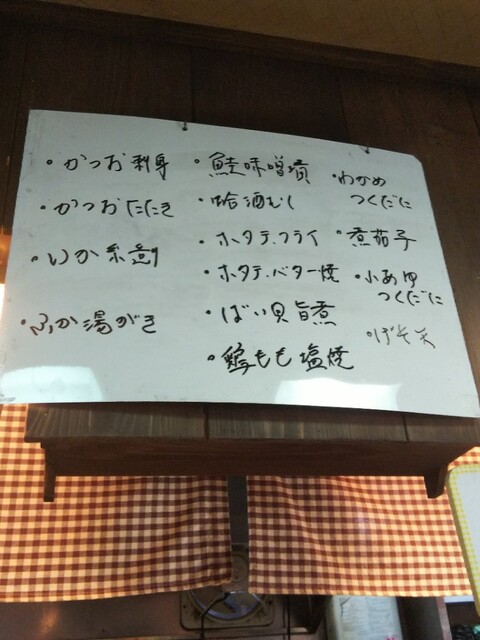 ・かつお刺身
・かつおたたき
・いか糸造り
・ふか湯がき
・鮭味噌漬
・蛤酒むし
・ホタテ.フライ
・ホタテ.バター焼
・ばい貝旨煮
・鶏もも塩焼
・わかめ
つくだに
・煮茄子
・小あゆ
つくだに
・げそ天